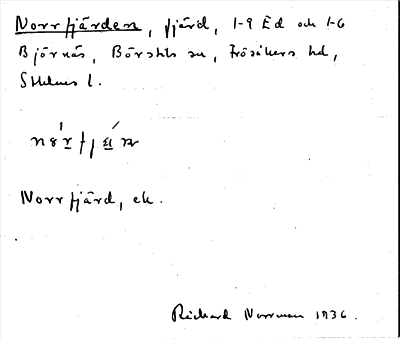 Norrfjärden, fjärd, 1-9 Ed och 1-6
Björnäs, Börstils sn, Frösåkers hd,
Sthlms l.
Norrfjärd, ek.
Richard Norrman 1936.